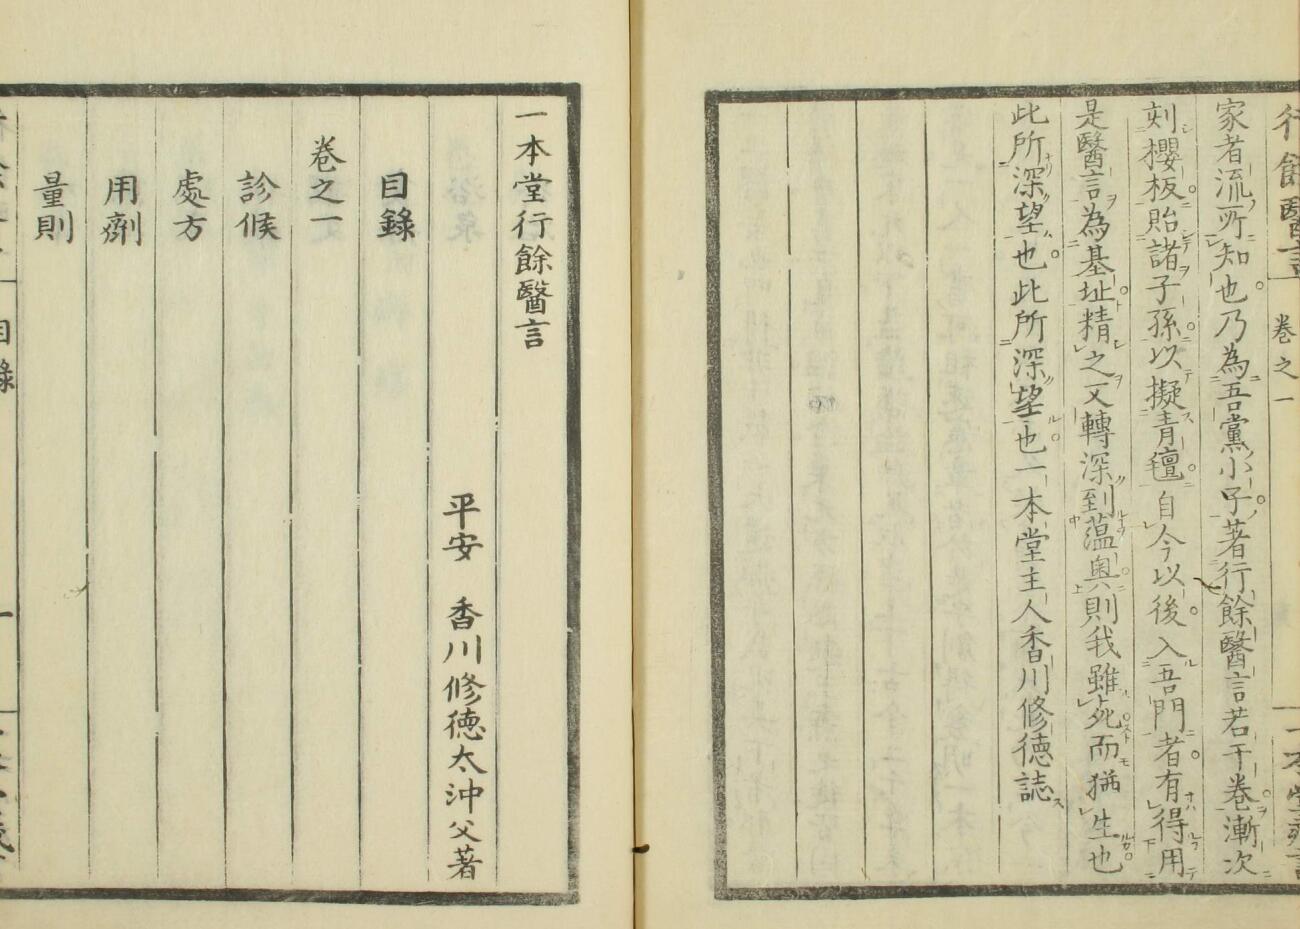 行餘醫言 卷之一
家者流所知也乃為吾黨小子著行餘醫言若干卷漸次
刻櫻板貽諸子孫以擬青氈自今以後入吾門者有得用
是醫言為基址精之又轉深到蘊奥則我雖死而猶生也
此所深望也此所深望也一本堂主人香川修德誌
一本堂行餘醫言
平安 香川修德太沖父著
目錄
卷之一
診候
處方
用劑
量則
目錄 一